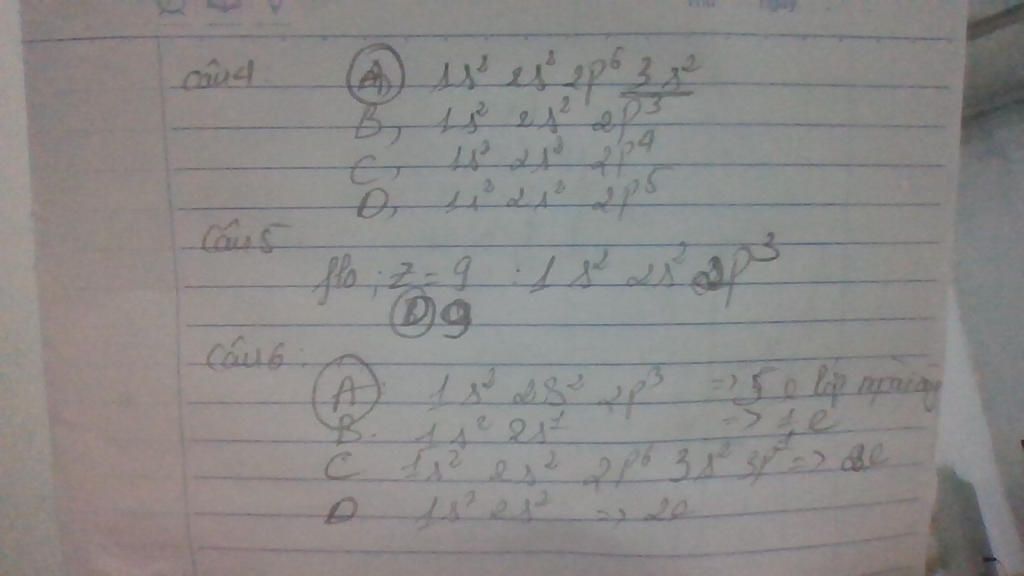 Câu 4 A, 1s² 2s² 2p⁶ 3s²
B, 1s² 2s² 2p³
C, 1s² 2s² 2p⁴
D, 1s² 2s² 2p⁵
Câu 5
flo ; z = 9 : 1s² 2s² 2p³
D 9
Câu 6 :
A. 1s² 2s² 2p³ => 5 e lớp ngoài
B. 1s² 2s¹ => 1e
C 1s² 2s² 2p⁶ 3s² 3p¹ =>
D 1s² 2s² => 2e